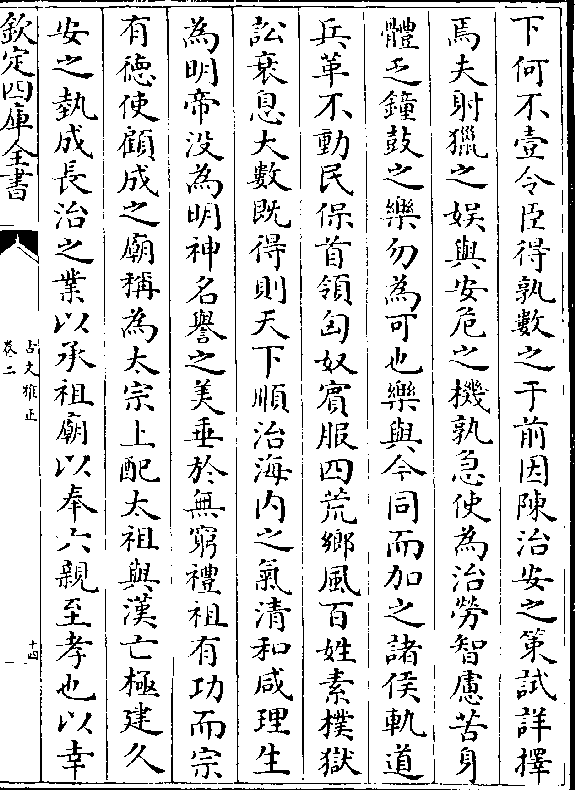 下何不壹令臣得孰數之于前因陳治安之策試詳擇
焉夫射獵之娛與安危之機孰急使為治勞智慮苦身
體乏鐘鼓之樂勿為可也樂與今同而加之諸侯軌道
兵革不動民保首領匈奴賓服四荒鄉風百姓素樸獄
訟衰息大數既得則天下順治海内之氣清和咸理生
為明帝没為明神名譽之美垂於無窮禮祖有功而宗
有徳使顧成之廟稱為太宗上配太祖與漢亡極建久
安之埶成長治之業以承祖廟以奉六親至孝也以幸
欽定四庫全書
古文雅正
卷二
十四